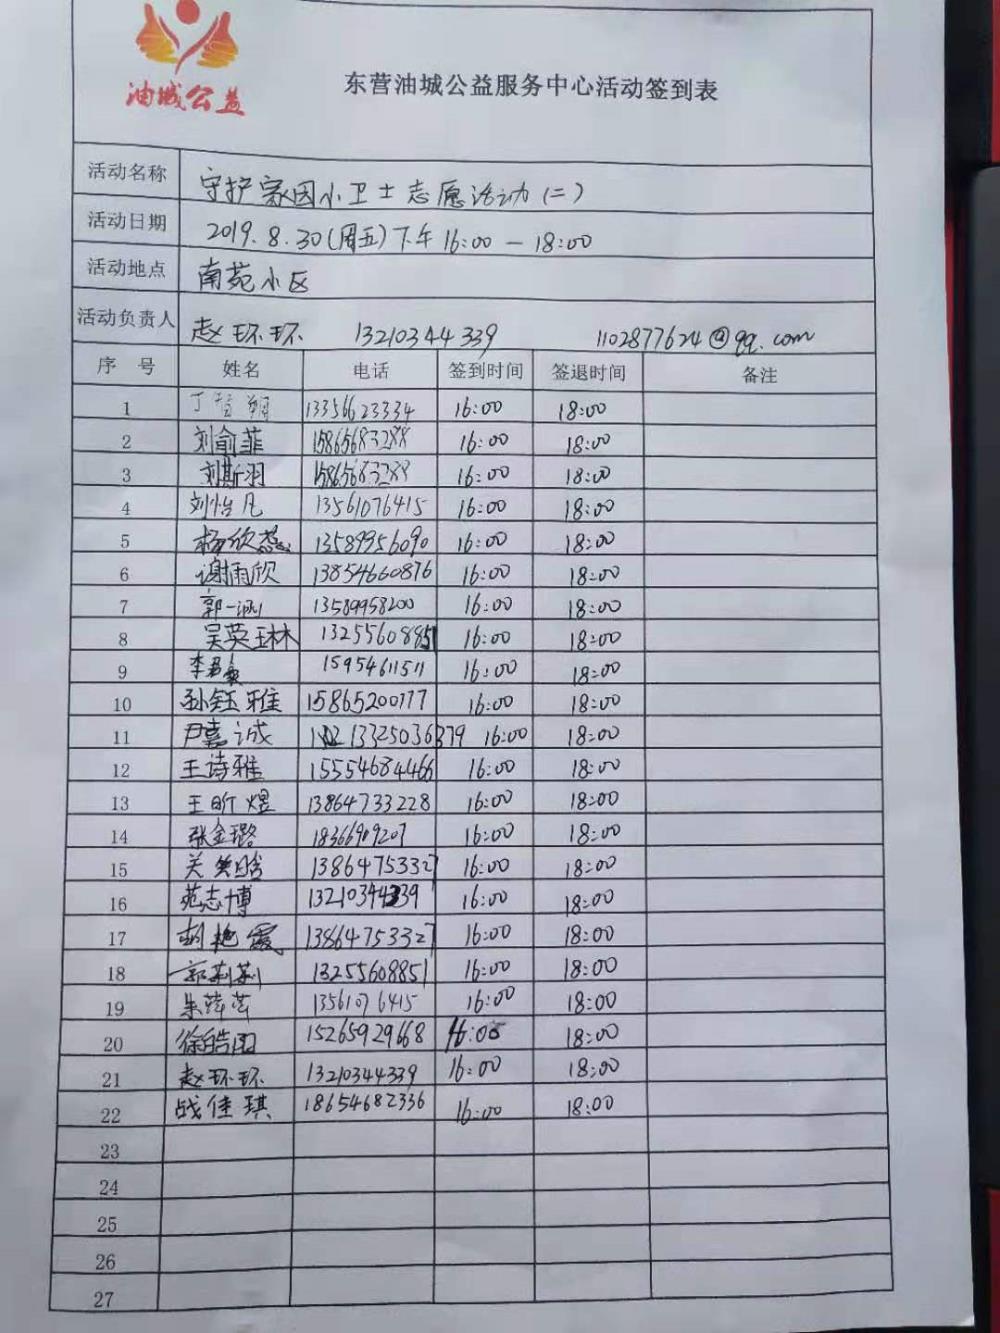 油城公益
东营油城公益服务中心活动签到表
活动名称 守护家园小卫士志愿活动(二)
活动日期 2019.8.30(周五)下午16:00-18:00
活动地点 南苑小区
活动负责人 赵环环 13210344339 1102877624@qq.com
序号 姓名 电话 签到时间 签退时间 备注
1 丁 13356623334 16:00 18:00
2 刘俞菲 15865683288 16:00 18:00
3 刘斯羽 15865683288 16:00 18:00
4 刘怡凡 13561076415 16:00 18:00
5 杨欣燕 13589956090 16:00 18:00
6 谢雨欣 13854660876 16:00 18:00
7 郭一涵 13589958200 16:00 18:00
8 吴英琳 13255608851 16:00 18:00
9 李 15954611511 16:00 18:00
10 孙钰雅 15865200177 16:00 18:00
11 尹嘉诚 13325036379 16:00 18:00
12 王诗雅 15554684466 16:00 18:00
13 王昕煜 13864733228 16:00 18:00
14 张金璐 18366909207 16:00 18:00
15 关笑晗 13864753327 16:00 18:00
16 苑志博 13210344339 16:00 18:00
17 胡艳霞 13864753327 16:00 18:00
18 郭莉莉 13255608851 16:00 18:00
19 朱萍萍 13561076415 16:00 18:00
20 徐皓阳 15265929668 16:00 18:00
21 赵环环 13210344339 16:00 18:00
22 战佳琪 18654682336 16:00 18:00
23
24
25
26
27